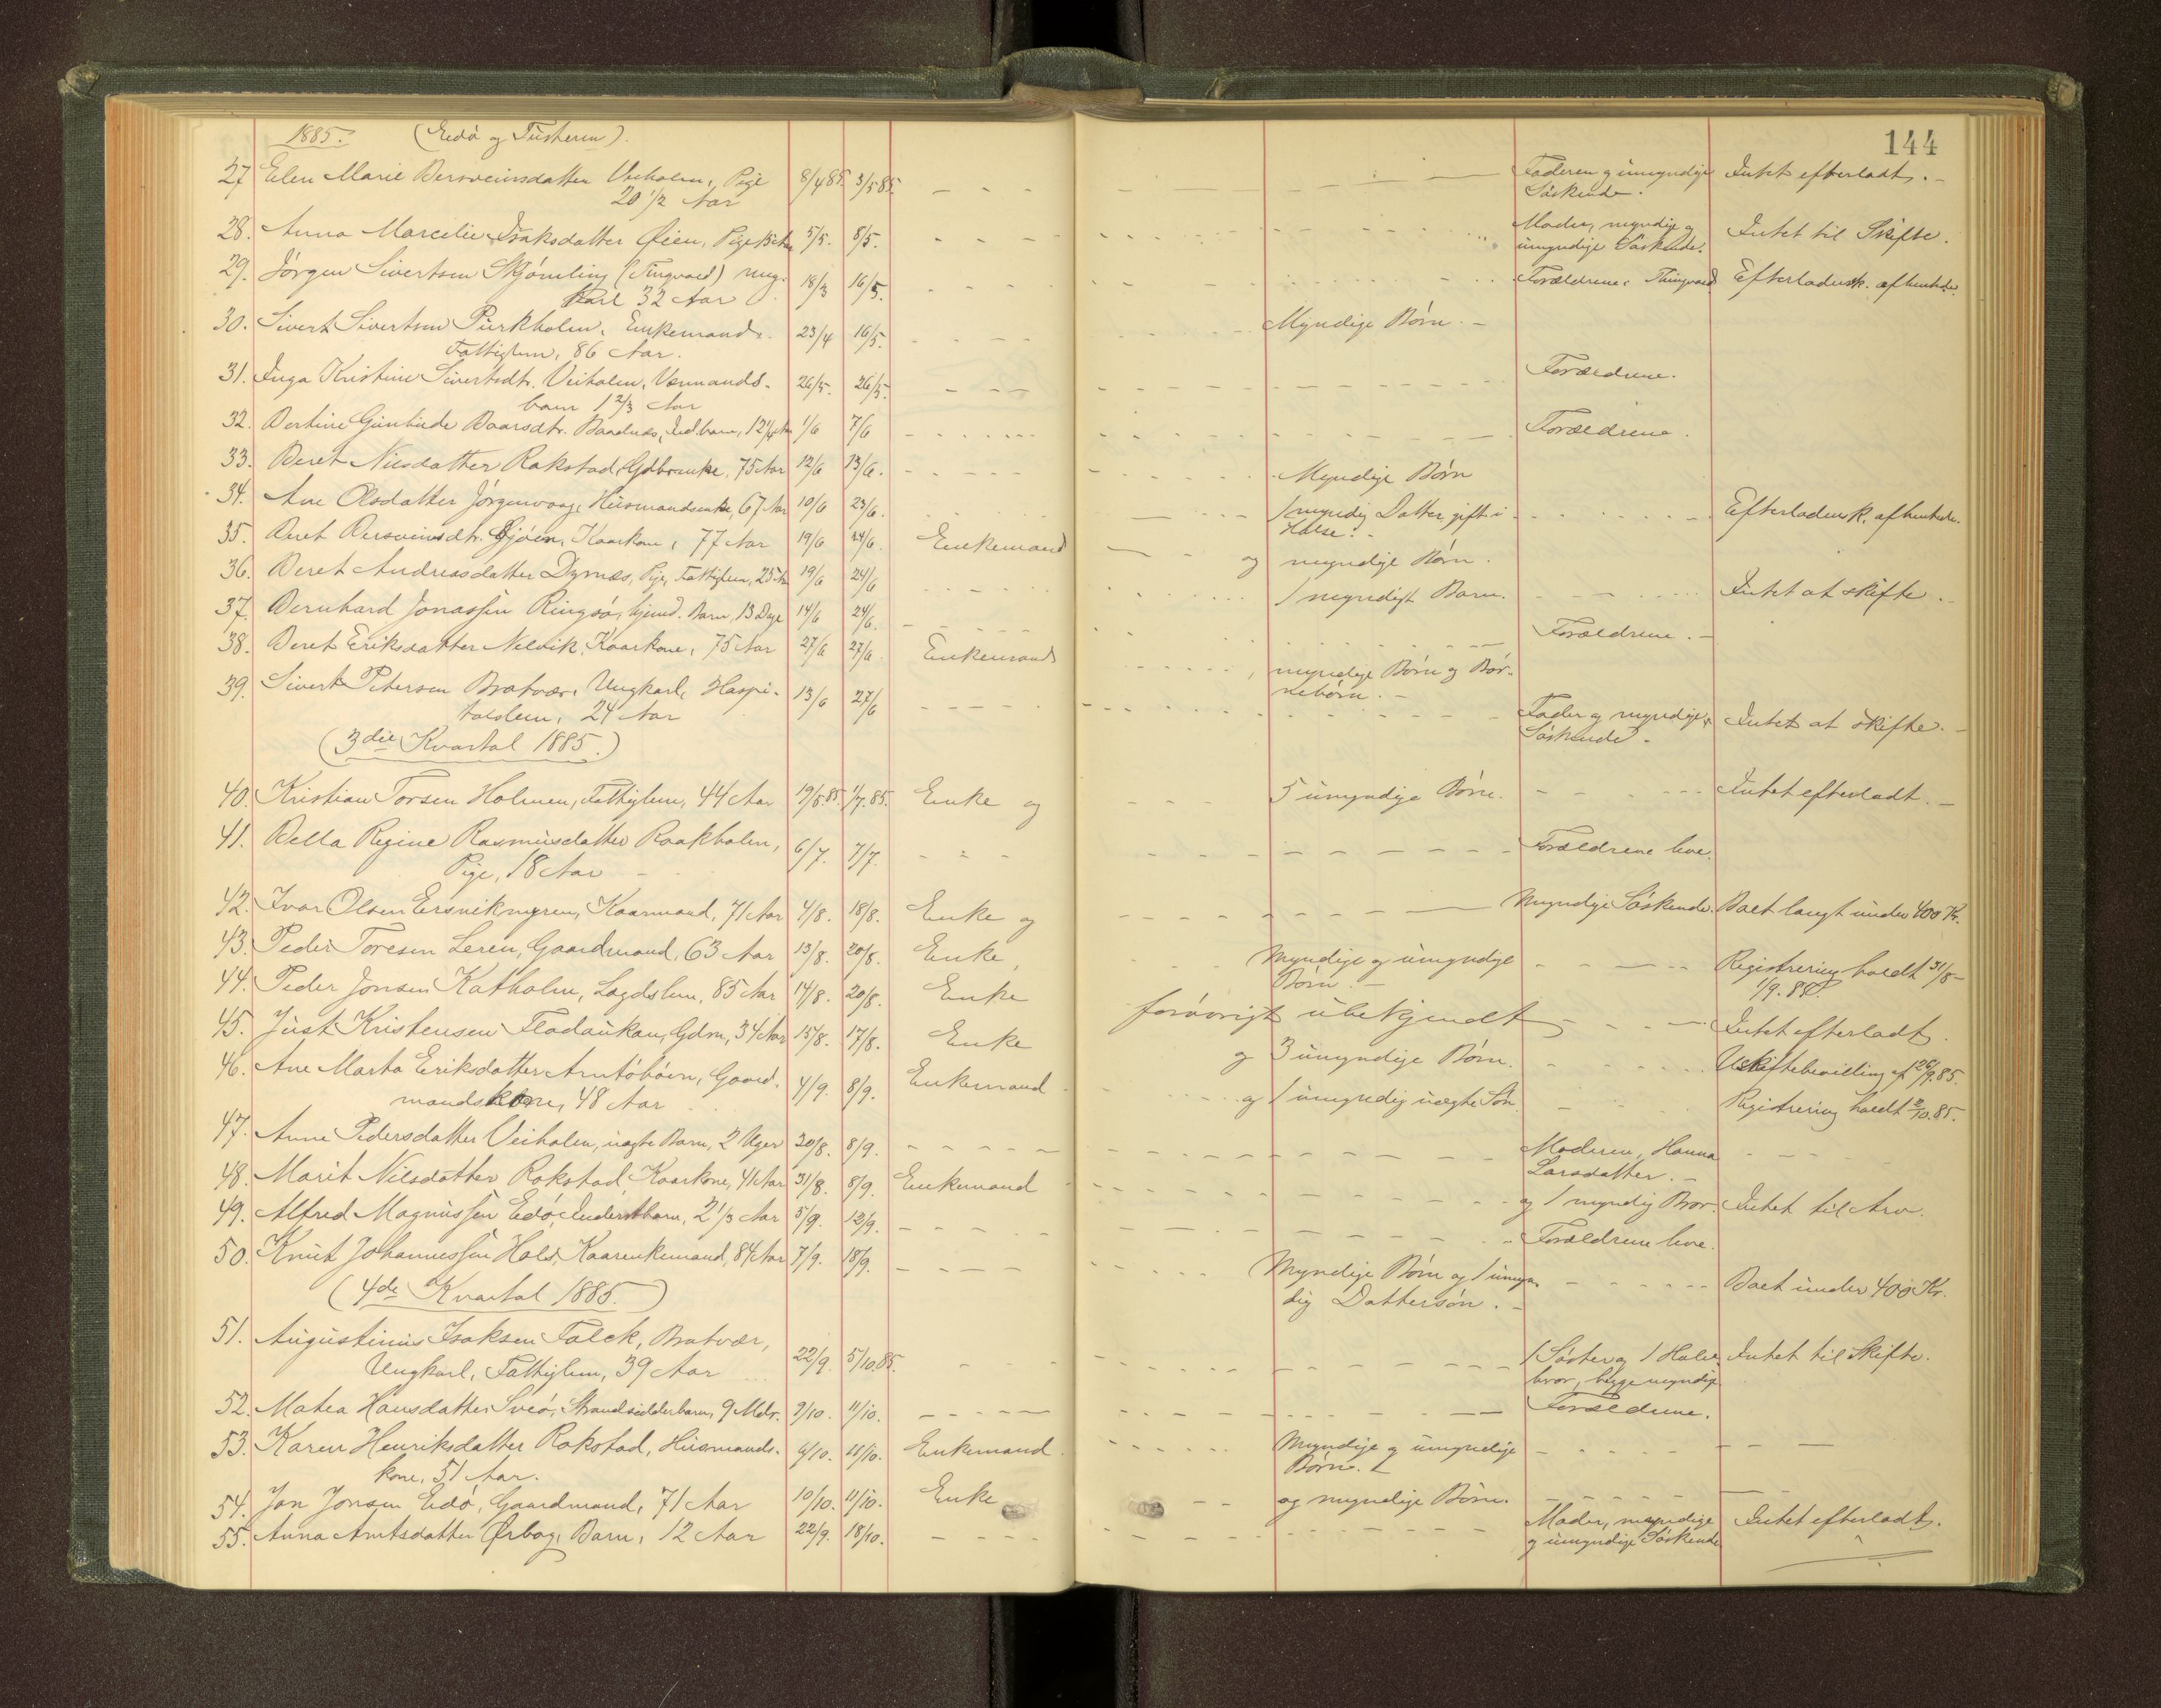 144
1885. (Edö og Tusteren).
27 Elen Marie Bersveinsdatter Veiholm, Pige 8/4 85. 3/5 85. Faderen og umyndige Intet efterladt.
20 1/2 Aar Söskende.
28. Anna Marcelie Isaksdatter Öien, Pige 5/5. 8/5. Moder, myndige og Intet til Skifte.
umyndige Söskende.
29. Jörgen Sivertsen Skjömling (Tingvold) ung- 18/3 16/5. Forældrene i Thingvold Efterladensk. afhentede.
karl 32 Aar
30. Sivert Sivertsen Purkholm, Enkemand, 23/4 16/5. Myndige Börn.
Fattiglem, 86 Aar.
31. Inga Kristine Sivertsdtr. Veiholm, 26/5. 26/5. Forældrene.
barn 1 2/3 Aar
32. Bertine Baarsdtr. Baadnes, Ind.barn, 1/6 7/6 Forældrene.
33. Beret Nilsdatter Rokstad, Gdbr.enke, 75 Aar 12/6 13/6. Myndige Börn
34. Ane Olsdatter Jörgenvaag, Husmandsenke, 67 Aar 10/6 23/6. 1 myndig Datter gift i Efterladensk. afhentede.
Halse.
35. Beret Bersveinsdtr. Kaarkone, 77 Aar 19/6 24/6. Enkemand og myndige Börn.
36. Beret Andreasdatter Dyrnes, Pige, Fattiglem, 19/6 24/6 1 myndigt Barn. Intet at skifte.
37. Bernhard Jonassen Ringsö, Barn, 13 Dage 14/6 24/6. Forældrene.
38. Beret Eriksdatter Nelvik, Kaarkone, 75 Aar 27/6 27/6. Enkemand myndige Börn og Bör-
nebörn.
39. Sivert Petersen Bratvær, Ungkarl, Hospi- 13/6 27/6 Fader og myndige Intet at skifte.
talslem, 24 Aar Söskende.
(3die Kvartal 1885.)
40. Kristian Torsen Holmen, Fattiglem, 44 Aar 19/5 85. 1/7. 85. Enke og 5 umyndige Börn. Intet efterladt.
41. Della Regine Rasmusdatter Raakholm, 6/7. 7/7. Forældrene leve.
Pige, 18 Aar
42. Ivar Olsen Ersvikmyren, Kaarmand, 71 Aar 4/8. 18/8. Enke og Myndige Söskende. Boet langt under 400 Kr.
43. Peder Toresen Leren, Gaardmand, 63 Aar 13/8. 20/8. Enke, Myndige og umyndige Registrering holdt 31/8-
Börn. 1/9. 85.
44. Peder Jonsen Katholm, Lægdslem, 85 Aar 14/8. 20/8. Enke forövrigt ubekjendt Intet efterladt.
45. Just Kristensen Fladaukan, Gdm, 34 Aar 15/8. 17/8. Enke og 3 umyndige Börn. Uskiftebevilling af 26/9. 85.
46. Ane Marta Eriksdatter Arntöböen, Gaard- 4/9. 8/9. Enkemand og 1 umyndig uægte Sön. Registrering holdt 2/10. 85.
mandskone, 48 Aar
47. Anne Pedersdatter Veiholm, uægte Barn, 2 Uger 30/8. 8/9. Moderen, Hanna
Larsdatter.
48. Marit Nilsdatter Rokstad, Kaarkone, 41 Aar 31/8. 8/9. Enkemand og 1 myndig Bror. Intet til Arv.
49. Alfred Magnussen Edö, Inderstbarn, 2 1/3 Aar 5/9. 12/9. Forældrene leve.
50. Knut Johannessen Hold, Kaarenkemand, 84 Aar 7/9. 18/9. Myndige Börn og 1 umyn- Boet under 400 Kr.
dig Dattersön.
(4de Kvartal 1885.)
51. Augustinus Isaksen Falck, Bratvær, 22/9. 5/10. 85. 1 Söster og 1 Halv- Intet til Skifte.
Ungkarl, Fattiglem, 39 Aar bror, begge myndige
52. Matea Hansdatter Sveö, Strandsidderbarn, 9 Mdr. 9/10. 11/10. Forældrene.
53. Karen Henriksdatter Rokstad, Husmands- 4/10. 11/10. Enkemand. Myndige og umyndige
kone, 51 Aar. Börn.
54. Jon Jonsen Edö, Gaardmand, 71 Aar 10/10. 11/10. Enke og myndige Börn.
55. Anna Arntsdatter Ørbog, Barn, 12 Aar 22/9. 18/10. Moder, myndige Intet efterladt.
og umyndige Söskende